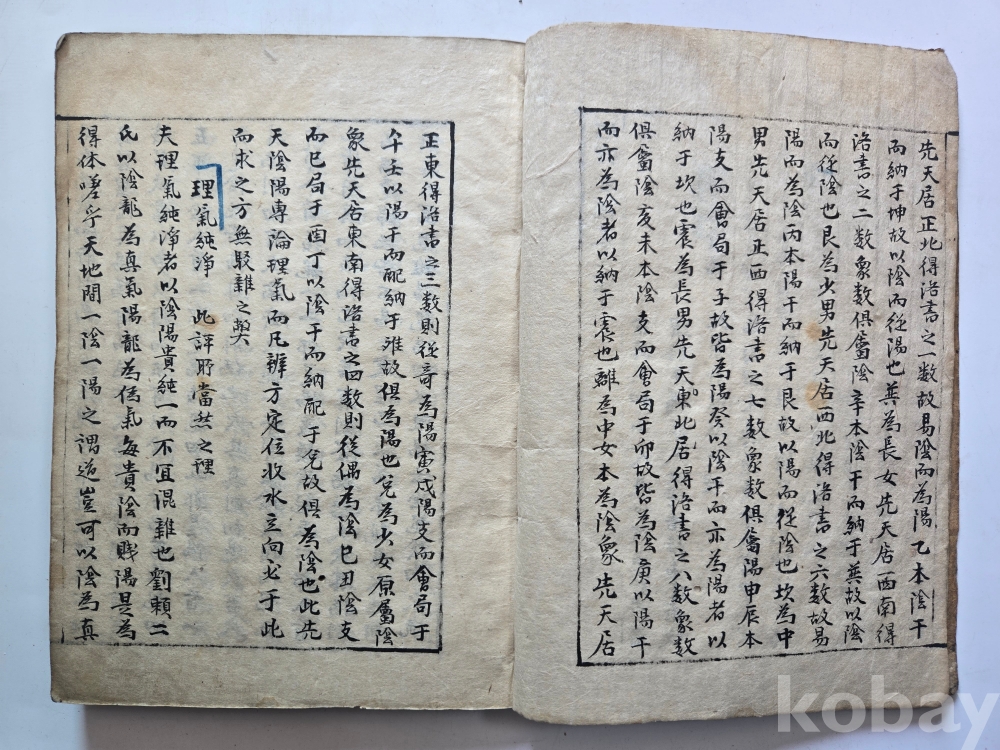 先天居正北得洛書之一數故易陰而為陽乙本陰干
而納于坤故以陰而從陽也巽為長女先天居西南得
洛書之二數象數俱屬陰辛本陰干而納于巽故以陰
而從陰也艮為少男先天居西北得洛書之六數故易
陽而為陰丙本陽干而納于艮故以陽而從陰也坎為中
男先天居正西得洛書之七數象數俱屬陽申辰本
陽支而會局于子故皆為陽癸以陰干而亦為陽者以
納于坎也震為長男先天東北居得洛書之八數象數
俱屬陰亥未本陰支而會局于卯故皆為陰庚以陽干
而亦為陰者以納于震也離為中女本為陰象先天居
正東得洛書之三數則從奇為陽寅戌陽支而會局于
午壬以陽干而配納于離故俱為陽也兌為少女原屬陰
象先天居東南得洛書之四數則從偶為陰巳丑陰支
而巳局于酉丁以陰干而納配于兌故俱為陰也此先
天陰陽專論理氣而凡辨方定位收水立向必于此
而求之方無駁雜之弊
理氣純淨 此評所當然之理
夫理氣純淨者以陰陽貴純一而不宜混雜也劉賴二
氏以陰龍為真氣陽龍為偽氣每貴陰而賤陽是為
得体嗟乎天地間一陰一陽之謂道豈可以陰為真
kobay